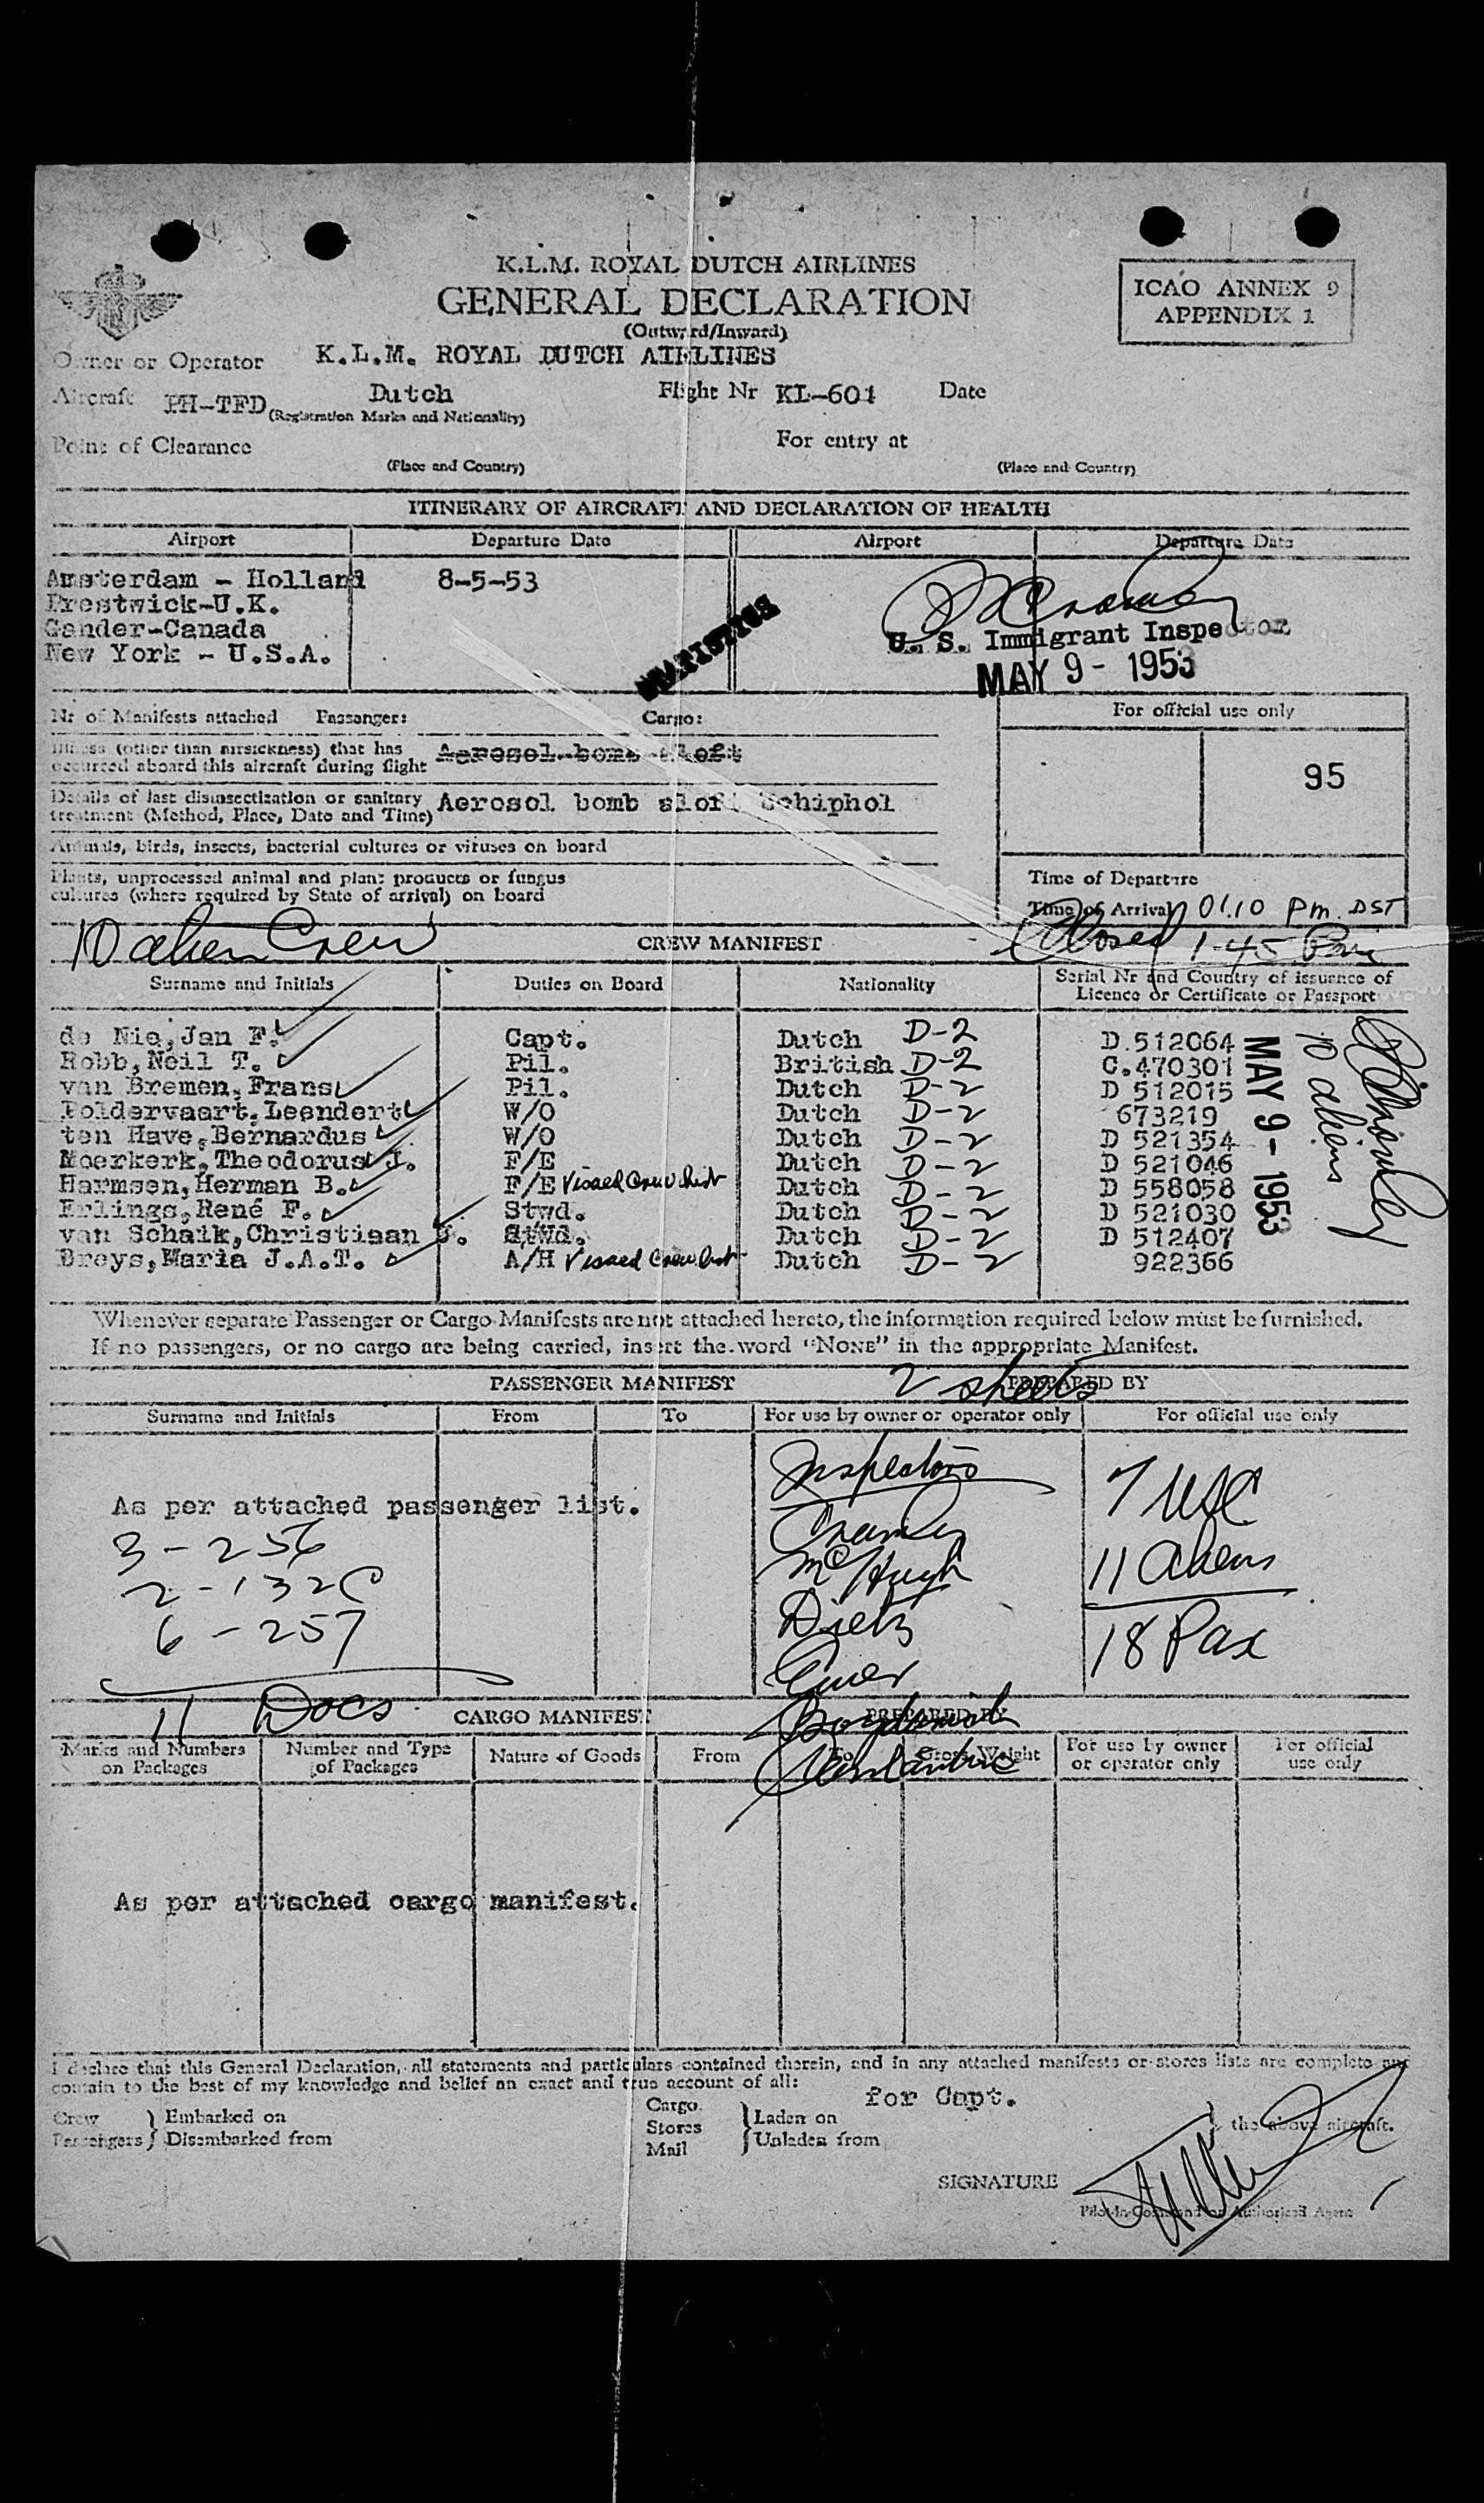 K.L.M. ROYAL DUTCH AIRLINES
GENERAL DECLARATION
(Outward/Inward)
ICAO ANNEX 9
APPENDIX 1
Owner or Operator K.L.M. ROYAL DUTCH AIRLINES
Aircraft PH-TFD Dutch Flight Nr KL-601 Date
(Registration Marks and Nationality)
Point of Clearance For entry at
(Place and Country) (Place and Country)
ITINERARY OF AIRCRAFT AND DECLARATION OF HEALTH
Airport Departure Date Airport Departure Date
Amsterdam - Holland 8-5-53
Prestwick-U.K.
Gander-Canada
New York - U.S.A.
STATISTICS
U. S. Immigrant Inspector
MAY 9 - 1953
Nr of Manifests attached Passenger: Cargo:
For official use only
Illness (other than airsickness) that has
occurred aboard this aircraft during flight Aerosol bomb aloft
95
Details of last disinsectization or sanitary
treatment (Method, Place, Date and Time) Aerosol bomb aloft Schiphol
Animals, birds, insects, bacterial cultures or viruses on board
Plants, unprocessed animal and plant products or fungus
cultures (where required by State of arrival) on board
Time of Departure
Time of Arrival 01.10 pm. DST
10 alien Crew CREW MANIFEST Closed 1-45 Pm
Surname and Initials Duties on Board Nationality Serial Nr and Country of issuance of
Licence or Certificate or Passport
de Nie, Jan F. Capt. Dutch D-2 D.512064
Robb, Neil T. Pil. British D-2 C.470301
van Bremen, Frans Pil. Dutch D-2 D 512015
Poldervaart. Leendert W/O Dutch D-2 673219
ten Have, Bernardus W/O Dutch D-2 D 521354
Moerkerk, Theodorus J. F/E Dutch D-2 D 521046
Harmsen, Herman B. F/E Visaed Crew List Dutch D-2 D 558058
Erlings, René F. Stwd. Dutch D-2 D 521030
van Schaik, Christiaan J. Stwd. Dutch D-2 D 512407
Breys, Maria J.A.T. A/H Visaed Crew List Dutch D-2 922366
MAY 9 - 1953
10 aliens
Whenever separate Passenger or Cargo Manifests are not attached hereto, the information required below must be furnished.
If no passengers, or no cargo are being carried, insert the word "NONE" in the appropriate Manifest.
PASSENGER MANIFEST 2 sheets PREPARED BY
Surname and Initials From To For use by owner or operator only For official use only
Inspectors
As per attached passenger list.
7 USC
3 - 256
McHugh
11 aliens
2 - 132C
6 - 257
Dietz
18 Pax
11 Docs CARGO MANIFEST PREPARED BY
Marks and Numbers
on Packages
Number and Type
of Packages
Nature of Goods From To Gross Weight
For use by owner
or operator only
For official
use only
As per attached cargo manifest.
I declare that this General Declaration, all statements and particulars contained therein, and in any attached manifests or stores lists are complete and
contain to the best of my knowledge and belief an exact and true account of all:
for Capt.
Crew Embarked on
Passengers Disembarked from
Cargo
Stores
Mail
Laden on
Unladen from
the above aircraft.
SIGNATURE
Pilot-in-Command or Authorised Agent